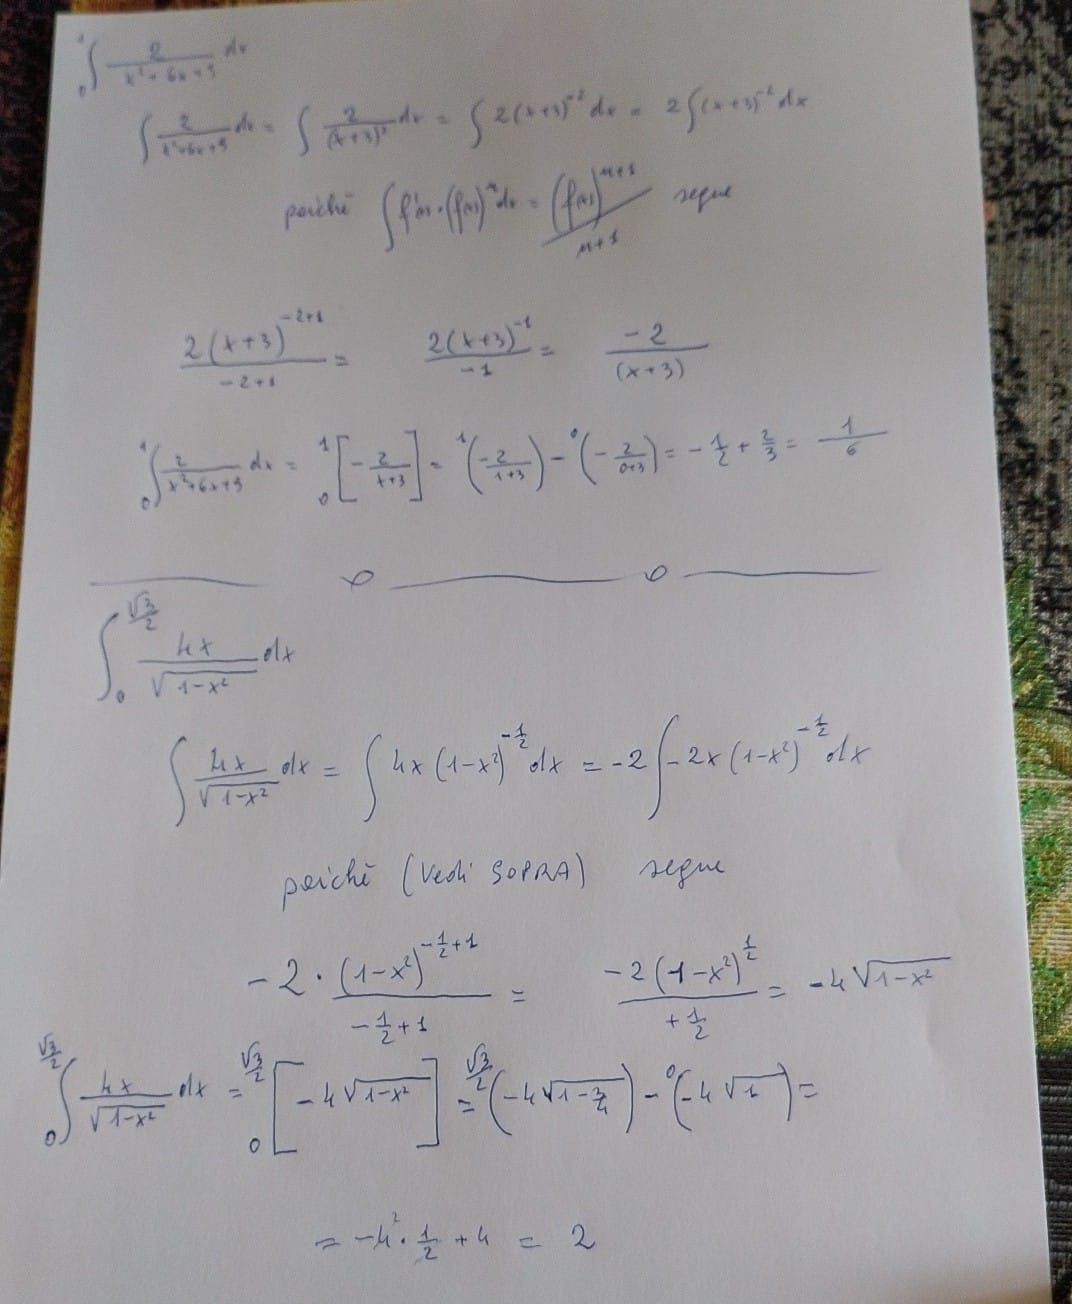 ₀∫¹ 2/(x²+6x+9) dx
∫ 2/(x²+6x+9) dx = ∫ 2/(x+3)² dx = ∫ 2(x+3)⁻² dx = 2∫(x+3)⁻² dx
poiché ∫ f'(x)·(f(x))ⁿ dx = (f(x))ⁿ⁺¹/(n+1) segue
2(x+3)⁻²⁺¹/(-2+1) = 2(x+3)⁻¹/(-1) = -2/(x+3)
₀∫¹ 2/(x²+6x+9) dx = ₀¹[-2/(x+3)] = ¹(-2/(1+3)) - ⁰(-2/(0+3)) = -1/2 + 2/3 = 1/6
∫₀^(√3/2) 4x/√(1-x²) dx
∫ 4x/√(1-x²) dx = ∫ 4x(1-x²)^(-1/2) dx = -2∫-2x(1-x²)^(-1/2) dx
poiché (Vedi SOPRA) segue
-2·(1-x²)^(-1/2+1)/(-1/2+1) = -2(1-x²)^(1/2)/(+1/2) = -4√(1-x²)
₀∫^(√3/2) 4x/√(1-x²) dx = ₀^(√3/2)[-4√(1-x²)] = ^(√3/2)(-4√(1-3/4)) - ⁰(-4√1) =
= -4²·1/2 + 4 = 2